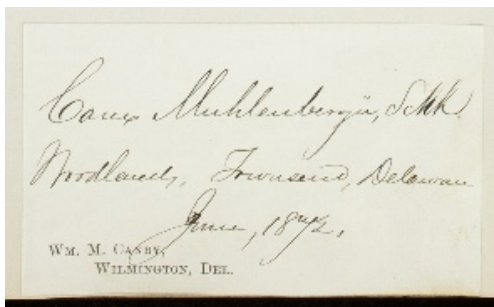 Carex Muhlenbergii, Schk.
Woodlands, Townsend, Delaware
June, 1872.
WM. M. CANBY,
WILMINGTON, DEL.